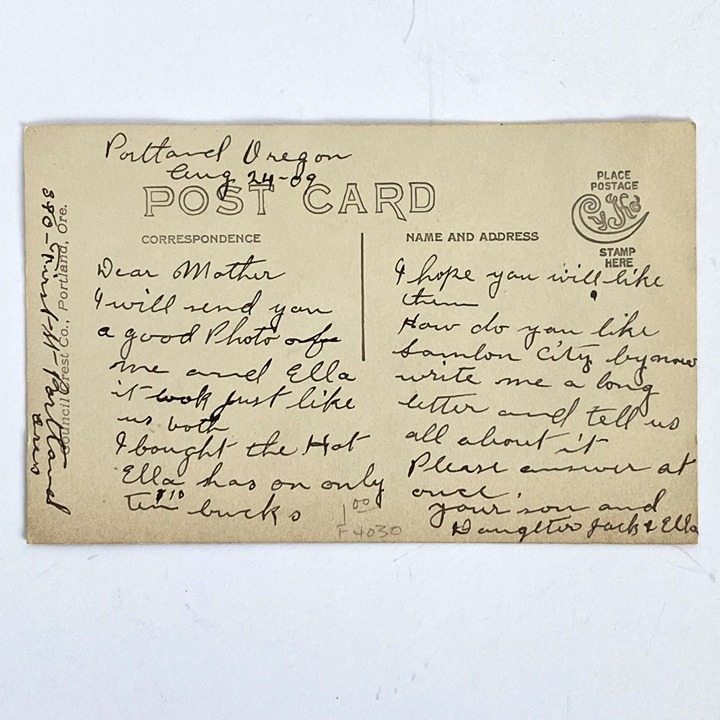 Portland Oregon
Aug 24-09
POST CARD
PLACE
POSTAGE
Cyko
STAMP
HERE
CORRESPONDENCE
NAME AND ADDRESS
Dear Mother
I will send you
a good Photo of
me and Ella
it look just like
us both
I bought the Hat
Ella has on only
$10
Ten bucks
I hope you will like
them
How do you like
City by now
write me a long
letter and tell us
all about it
Please answer at
once
your son and
Daughter Jack & Ella
390 - First St Portland
Oreg
Council Crest Co., Portland, Ore.
1 00
F4030